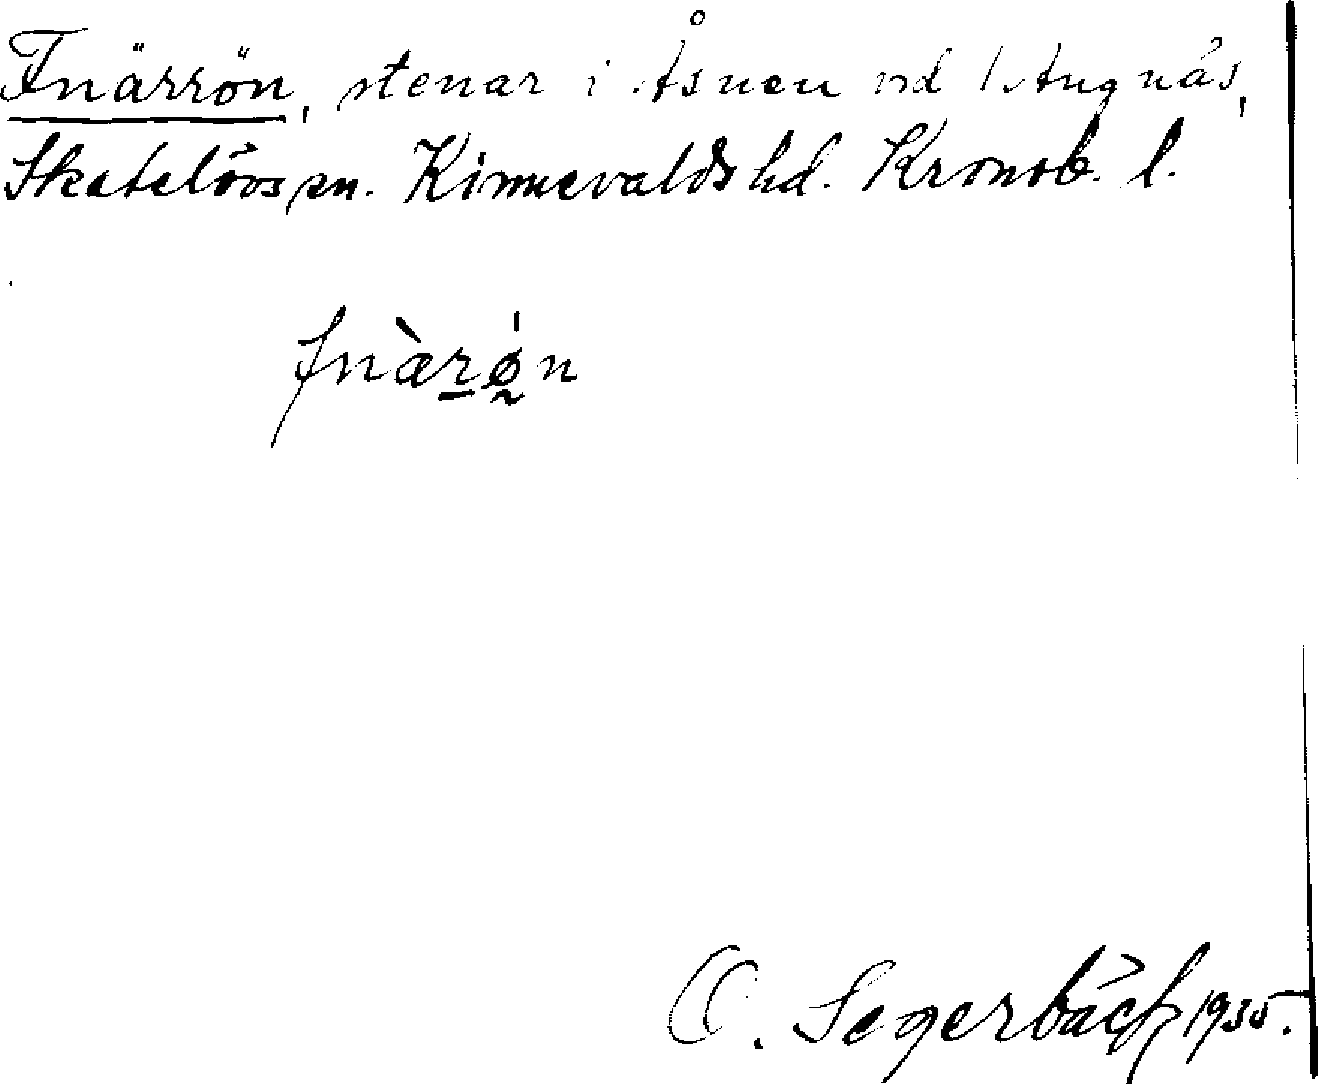 Fnärrön, stenar i Åsnen vid
Skatelövs sn. Kinnevalds hd. Kronob. l.
fnæ̀rø̀n
O. Segerbäck 1935.